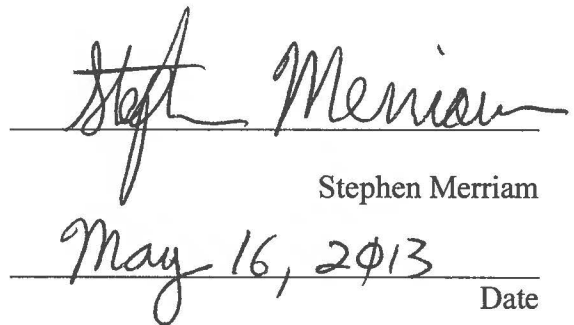 Stephen Merriam
Stephen Merriam
May 16, 2013
Date